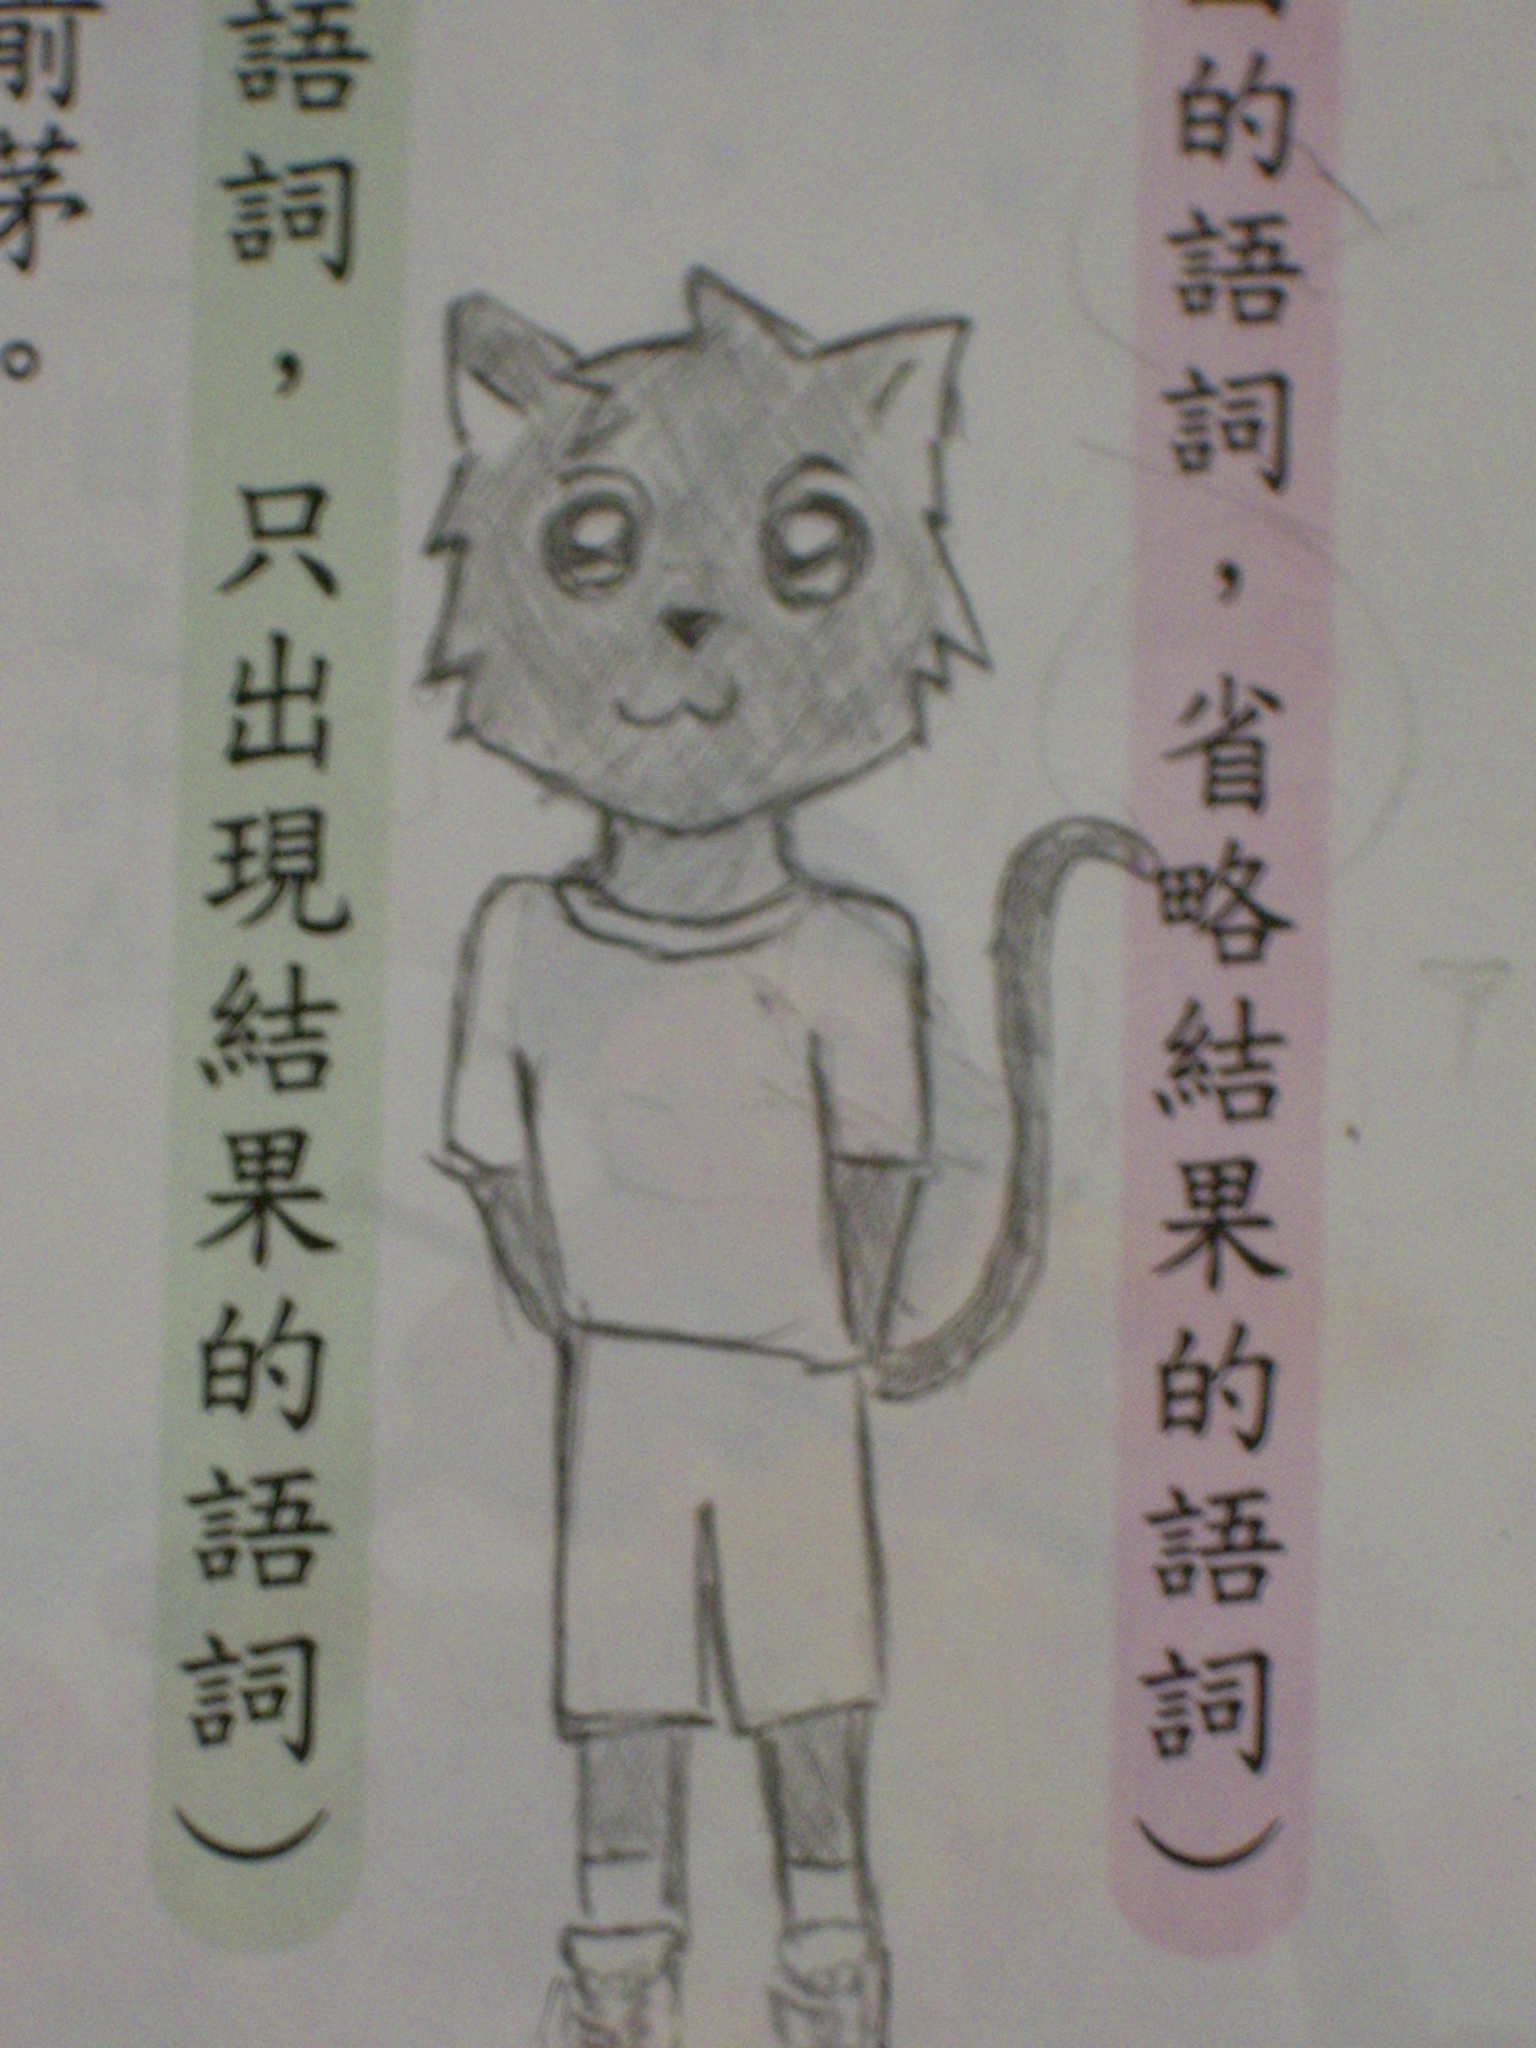 的語詞，省略結果的語詞）
語詞，只出現結果的語詞）
前茅。